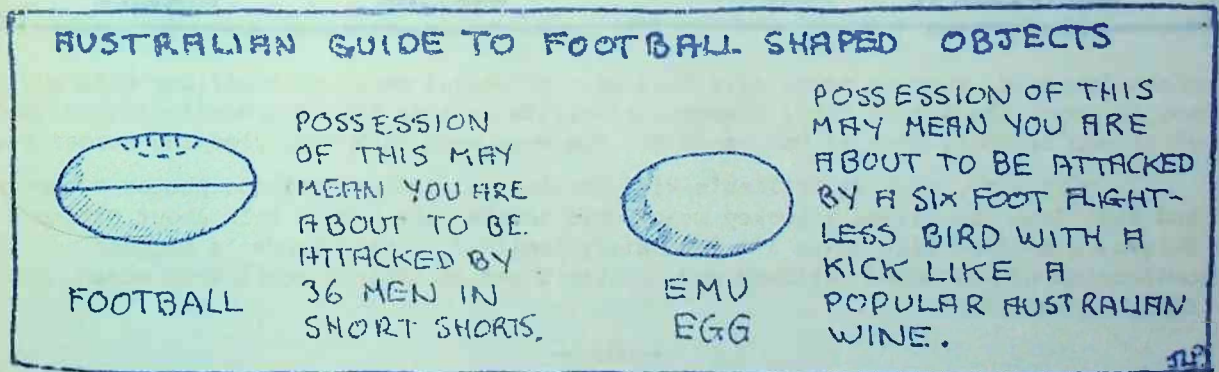 AUSTRALIAN GUIDE TO FOOTBALL SHAPED OBJECTS
POSSESSION
OF THIS MAY
MEAN YOU ARE
ABOUT TO BE
ATTACKED BY
36 MEN IN
SHORT SHORTS.
FOOTBALL
POSSESSION OF THIS
MAY MEAN YOU ARE
ABOUT TO BE ATTACKED
BY A SIX FOOT FLIGHT-
LESS BIRD WITH A
KICK LIKE A
POPULAR AUSTRALIAN
WINE.
EMU
EGG